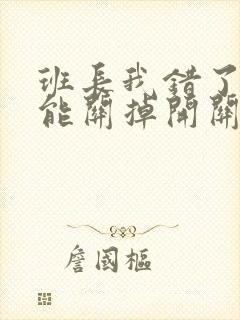 班長我錯了
能關掉開關
詹國樞